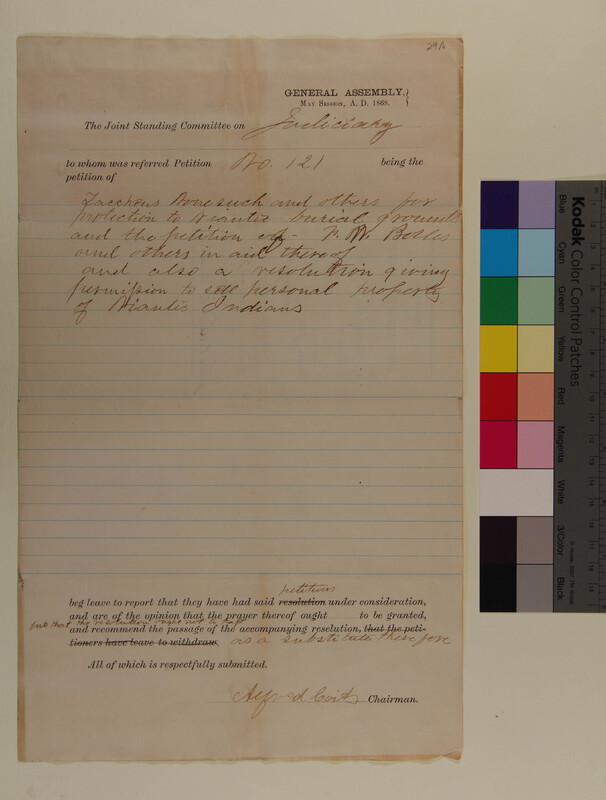 29A
GENERAL ASSEMBLY,}
MAY SESSION, A. D. 1868.
The Joint Standing Committee on Judiciary
to whom was referred Petition No. 121 being the
petition of
Zaccheus Nonesuch and others for
protection to Niantic burial grounds
and the petition of F. W. Bolles
and others in aid thereof
and also a resolution giving
permission to sell personal property
of Niantic Indians
petitions
beg leave to report that they have had said resolution under consideration,
and are of the opinion that the prayer thereof ought to be granted,
and that the resolution ought not to pass
and recommend the passage of the accompanying resolution, that the peti-
tioners have leave to withdraw. as a substitute therefore
All of which is respectfully submitted.
Alfred Coit Chairman.
Kodak Color Control Patches
Blue
Cyan
Green
Yellow
Red
Magenta
White
3/Color
Black